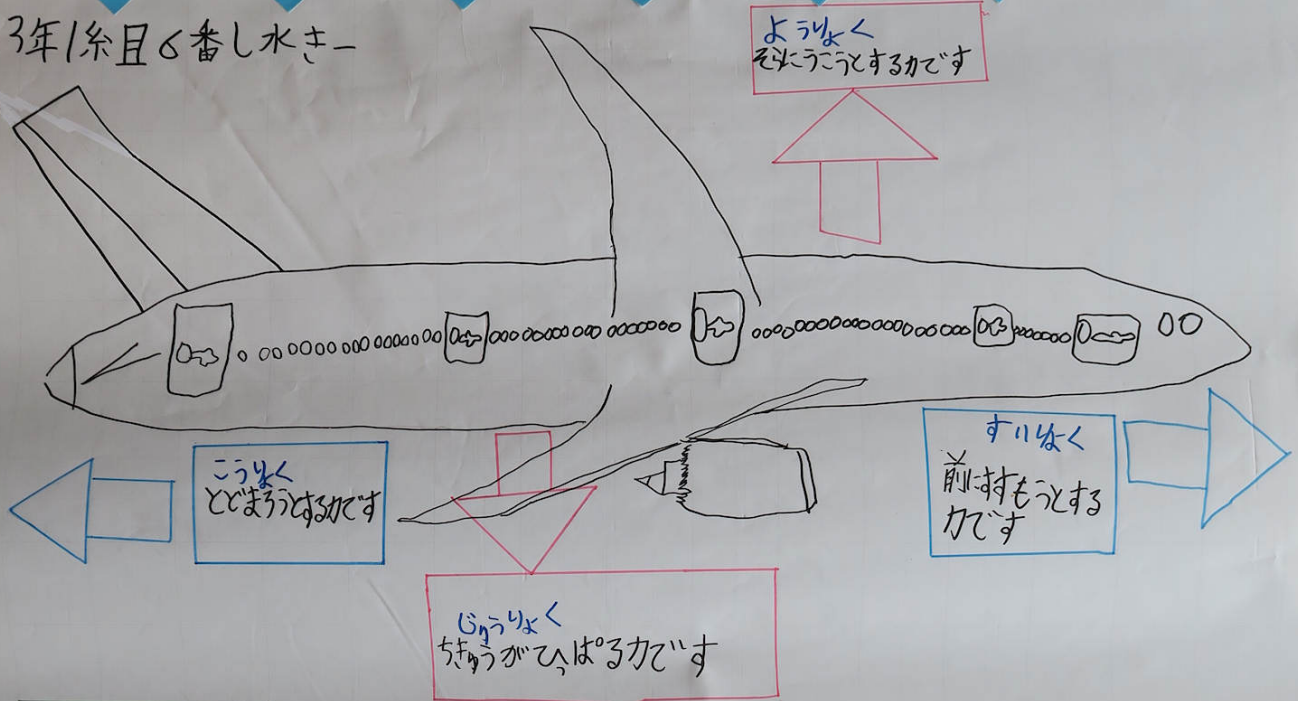 3年1糸且6番し水きー
ようりょく
そらにうこうとする力です
こうりょく
とどまろうとする力です
すいりょく
前にすすもうとする
力です
じゅうりょく
ちきゅうがひっぱる力です